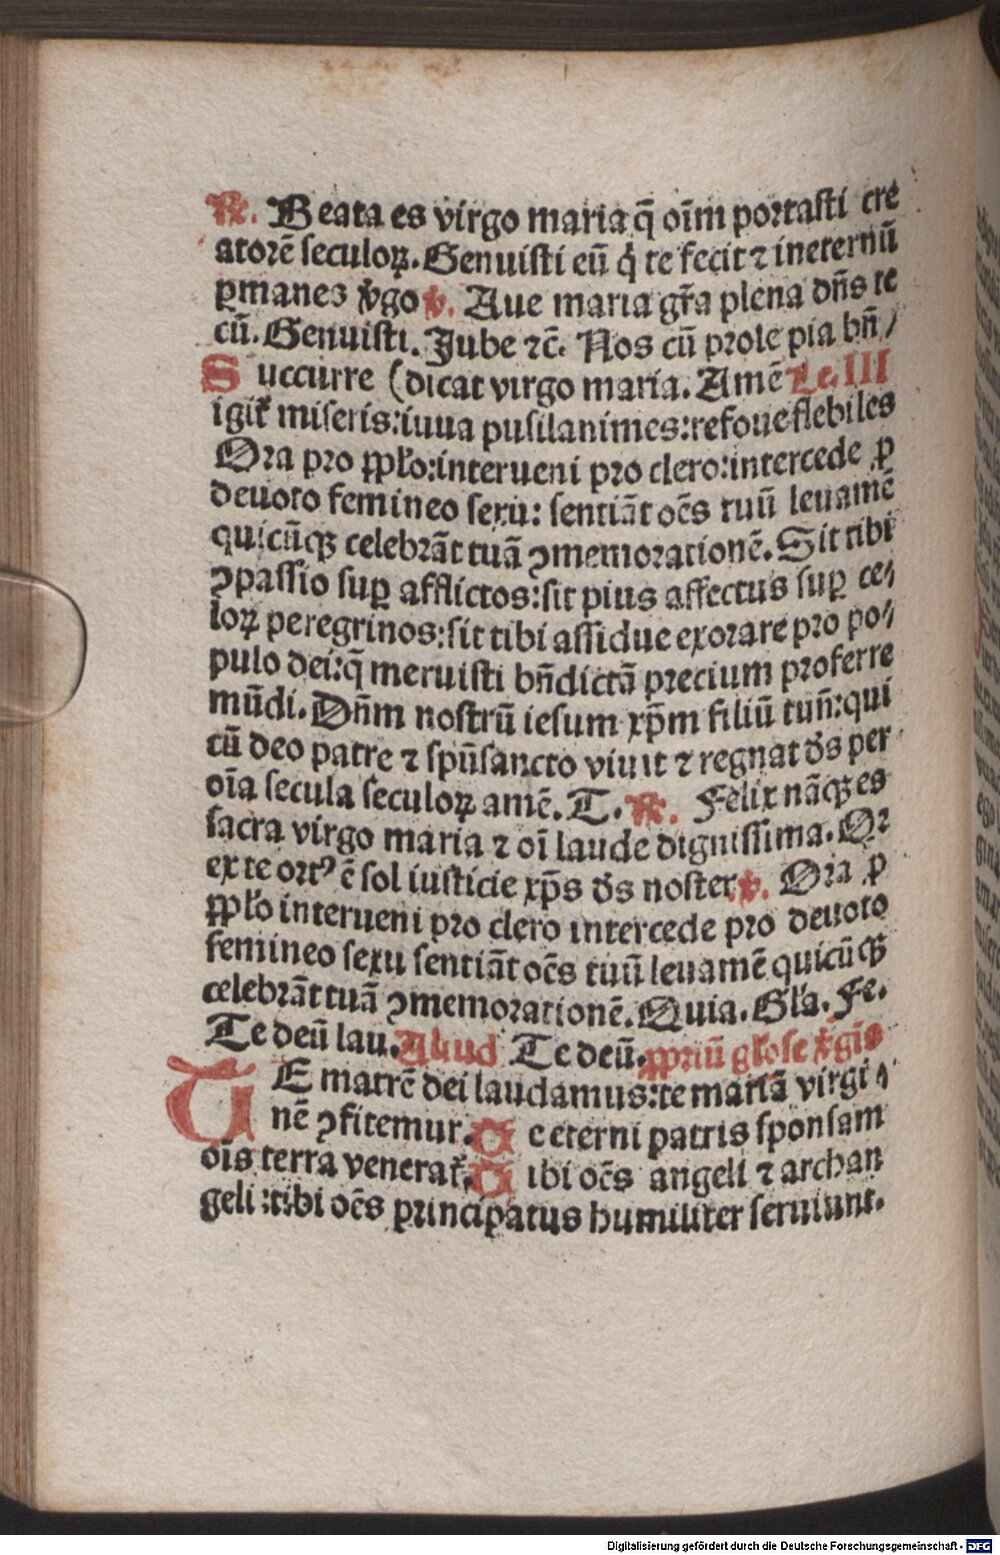 ℟. Beata es virgo maria q̄ oīm portasti cre
atorē seculoꝝ. Genuisti eū q̇ te fecit ⁊ ineternū
ꝑmanes v̄go ℣. Aue maria gr̄a plena dn̄s te
cū. Genuisti. Jube ⁊c̄. Nos cū prole pia bn̄/
dicat virgo maria. Amē Le. III
Succurre (
igit᷑ miseris: iuua pusilanimes: refoue flebiles
Ora pro ꝓplo: interueni pro clero: intercede ꝓ
deuoto femineo sexu: sentiāt oēs tuū leuamē
quicūqꝫ celebrāt tuā ꝯmemorationē. Sit tibi
ꝯpassio suꝑ afflictos: sit pius affectus suꝑ ce/
loꝝ peregrinos: sit tibi assidue exorare pro po/
pulo dei: q̄ meruisti bn̄dictā precium proferre
mūdi. Dn̄m nostrū iesum xp̄m filiū tuū: qui
cū deo patre ⁊ spūsancto viuit ⁊ regnat ds̄ per
oīa secula seculoꝝ amē. T. ℟. Felix nāqꝫ es
sacra virgo maria ⁊ oī laude dignissima. Qꝛ
ex te ortꝰ ē sol iusticie xp̄s ds̄ noster ℣. Ora ꝓ
ꝓplo interueni pro clero intercede pro deuoto
femineo sexu sentiāt oēs tuū leuamē quicūqꝫ
celebrāt tuā ꝯmemorationē. Quia. Gl̄a. Fe.
Te deū lau. Aliud Te deū. ꝓpriū gl̄ose v̄gīs
TE matrē dei laudamus: te mariā virgi/
nē ꝯfitemur. Te eterni patris sponsam
oīs terra venerat᷑. Tibi oēs angeli ⁊ archan
geli: tibi oēs principatus humiliter seruiunt.
Digitalisierung gefördert durch die Deutsche Forschungsgemeinschaft - DFG